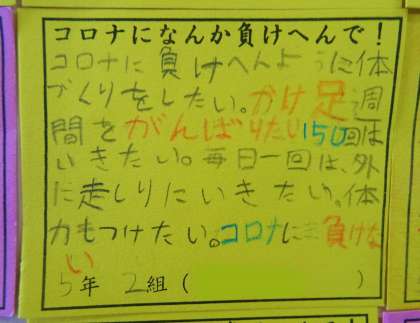 コロナになんか負けへんで！
コロナに負けへんように体
づくりをしたい。かけ足週
間をがんばりたい150回は
いきたい。毎日一回は、外
に走しりにいきたい。体
力もつけたい。コロナに負けな
い
5年 2組 ( )